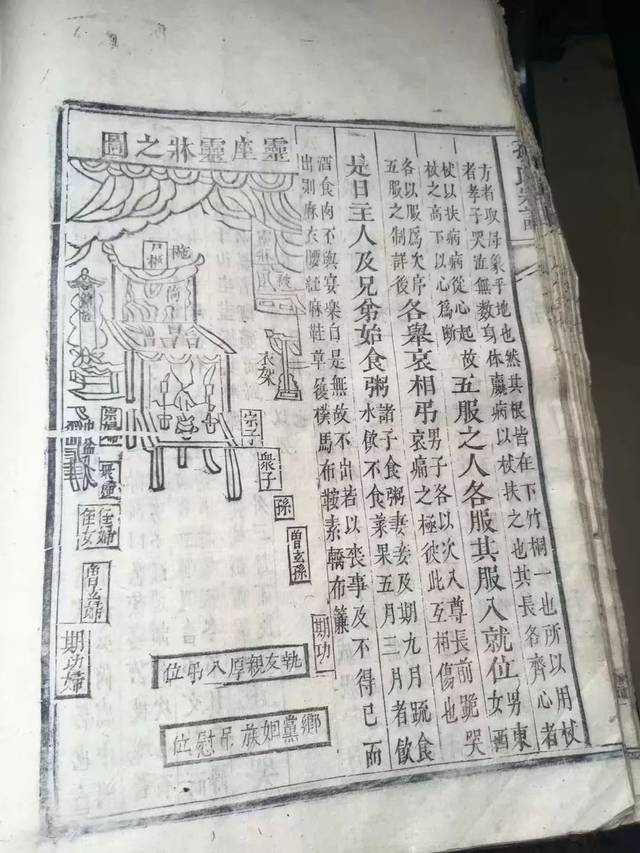 方者取母象乎地也然其根皆在下竹桐一也所以用杖
者孝子哭泣無数身体羸病以杖扶之也其長各齊心者
杖以扶病病從心起故
杖之高下以心爲断
五服之人各服其服入就位
男東
女西
各以服爲次序
五服之制詳後
各舉哀相弔
男子各以次入尊長前跪哭
哀痛之極彼此互相傷也
是日主人及兄弟始食粥
諸子食粥妻妾及期九月蹠食
水飲不食菜果五月三月者飲
酒食肉不與宴樂自是無故不出若以喪事及不得已而
出則麻衣腰絰麻鞋草履樸馬布鞍素轎布簾
靈座靈牀之圖
衣架
宗子
衆子
孫
曾玄孫
期功
衆婦
侄婦
侄女
曾玄婦
期功婦
執友親厚入弔位
鄉黨姻族吊慰位